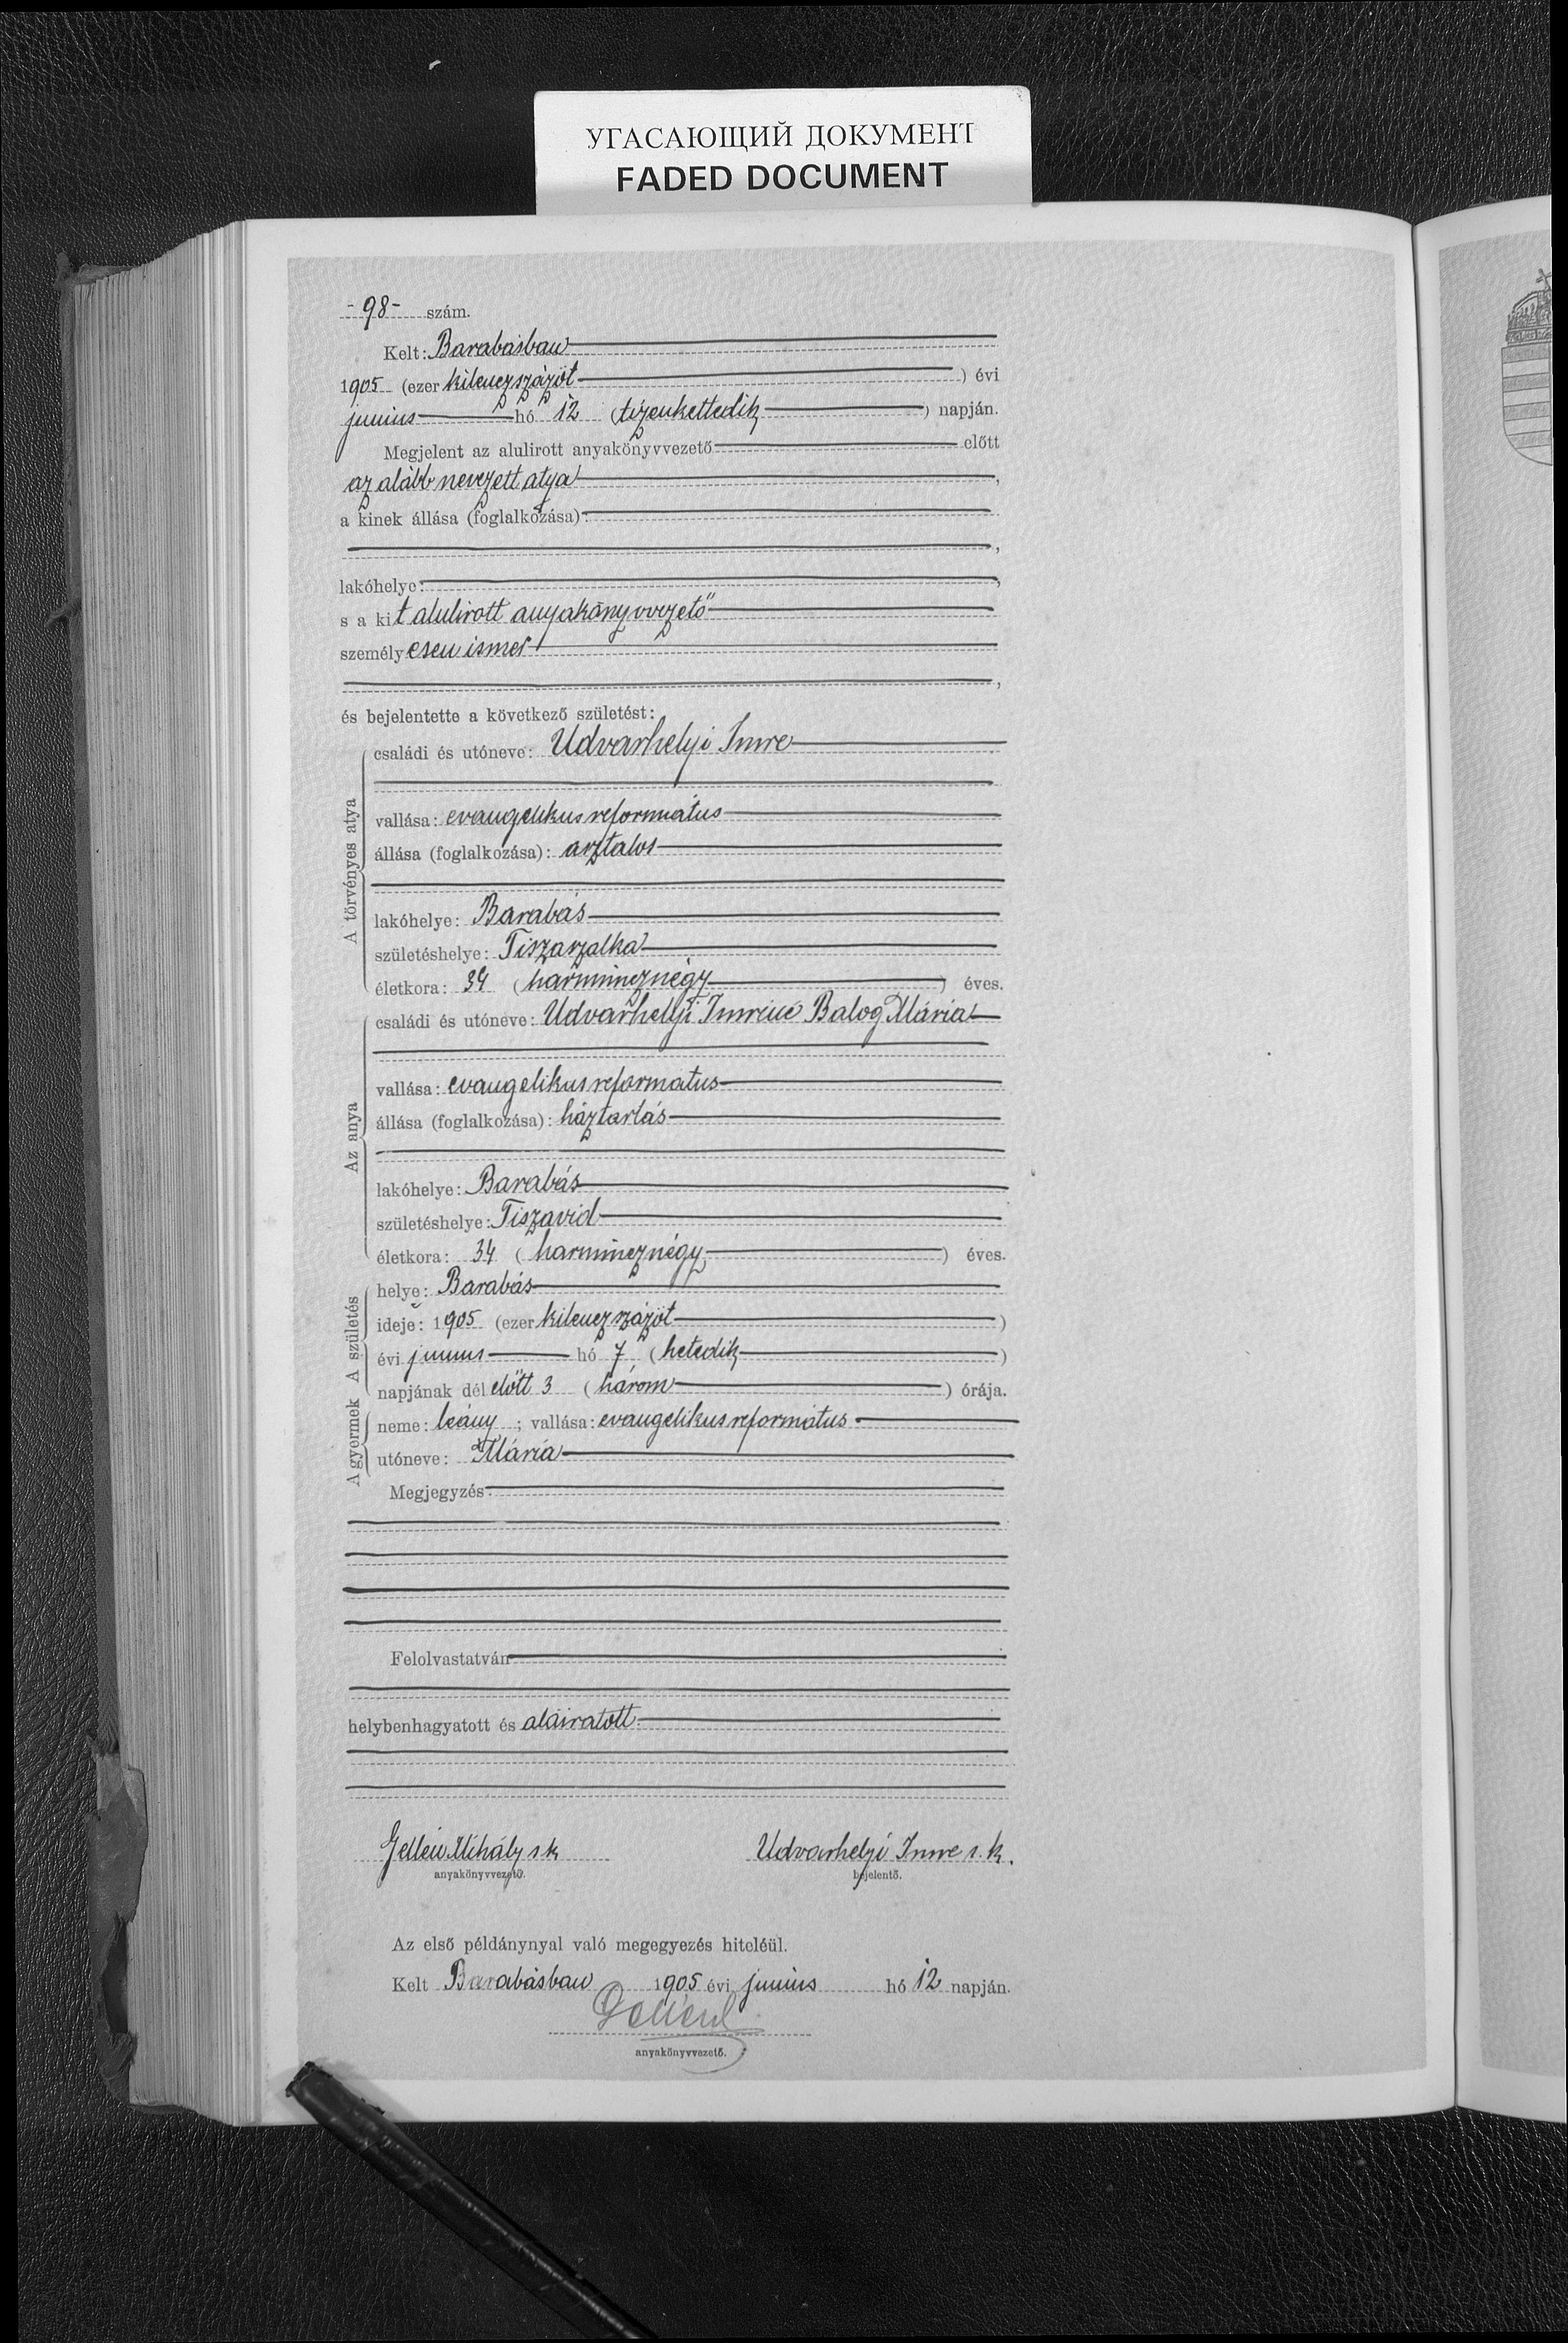 УГАСАЮЩИЙ ДОКУМЕНТ
FADED DOCUMENT
-98- szám.
Kelt: Barabásban
1905 (ezer kilenczszázöt) évi
junius hó 12 (tizenkettedik) napján.
Megjelent az alulirott anyakönyvvezető előtt
az alább nevezett atya,
a kinek állása (foglalkozása):
,
lakóhelye:,
s a kit alulirott anyakönyvvezető
személyesen ismer
,
és bejelentette a következő születést:
A törvényes atya
családi és utóneve: Udvarhelyi Imre
vallása: evangelikus református
állása (foglalkozása): asztalos
lakóhelye: Barabás
születéshelye: Tiszaszalka
életkora: 34 (harmincznégy) éves.
Az anya
családi és utóneve: Udvarhelyi Imréné Balog Mária
vallása: evangelikus reformatus
állása (foglalkozása): háztartás
lakóhelye: Barabás
születéshelye: Tiszavid
életkora: 34 (harmincznégy) éves.
A születés
helye: Barabás
ideje: 1905 (ezer kilencz százöt)
évi junius hó 7 (hetedik)
napjának dél előtt 3 (három) órája.
A gyermek
neme: leány; vallása: evangelikus református
utóneve: Mária
Megjegyzés:
Felolvastatván
helybenhagyatott és aláiratott.
Mihály s k Udvarhelyi Imre s. k.
anyakönyvvezető. bejelentő.
Az első példánynyal való megegyezés hiteléül.
Kelt Barabásban 1905 évi junius hó 12 napján.
anyakönyvvezető.